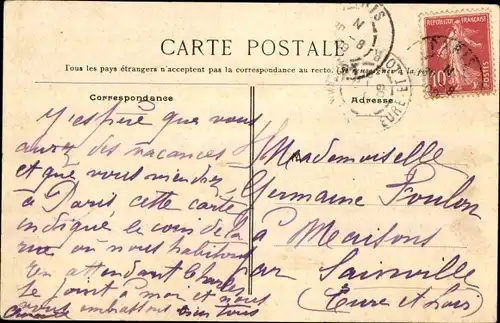 CARTE POSTALE
Tous les pays étrangers n'acceptent pas la correspondance au recto. (Se renseigner à la
RÉPUBLIQUE FRANÇAISE
10
POSTES
PARIS
EURE
Correspondance
Adresse
J'espère que vous
aurez des vacances
et que vous viendrez
à Paris cette carte
indique le coin de la
rue où nous habitons
En attendant Charles
se joint à moi et nous
vous embrassons bien tous
Mademoiselle
Germaine Foulon
à Maisons
par Sainville
(Eure et Loir)